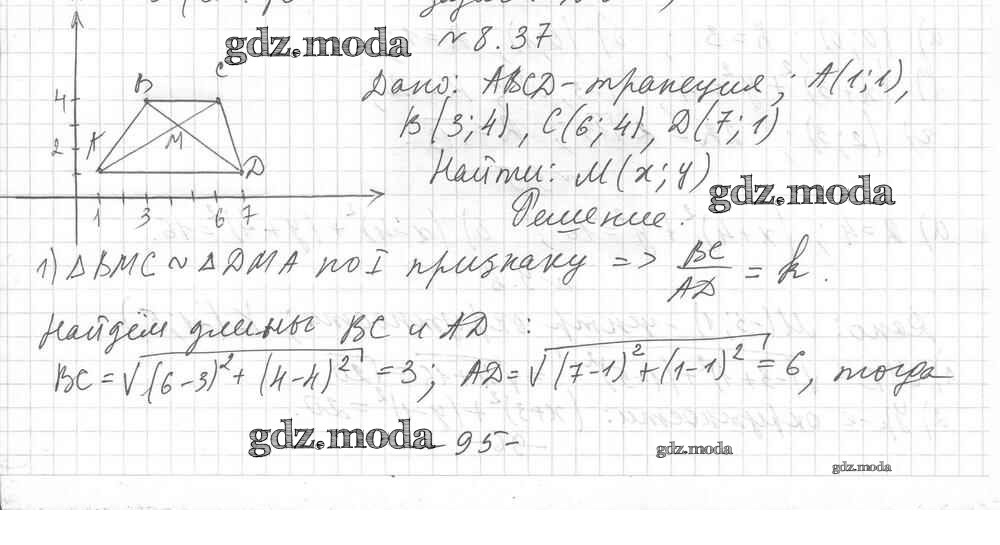 gdz.moda
№ 8.37
Дано: ABCD - трапеция; A(1;1),
B(3;4), C(6;4), D(7;1)
Найти: M(x;y)
gdz.moda
Решение.
B
C
4
A
M
2
D
1 3 6 7
1) △BMC ~ △DMA по I признаку => BC/AD = k.
Найдём длины BC и AD:
BC = √((6-3)²+(4-4)²) = 3, AD = √((7-1)²+(1-1)²) = 6, тогда
gdz.moda
-95-
gdz.moda
gdz.moda